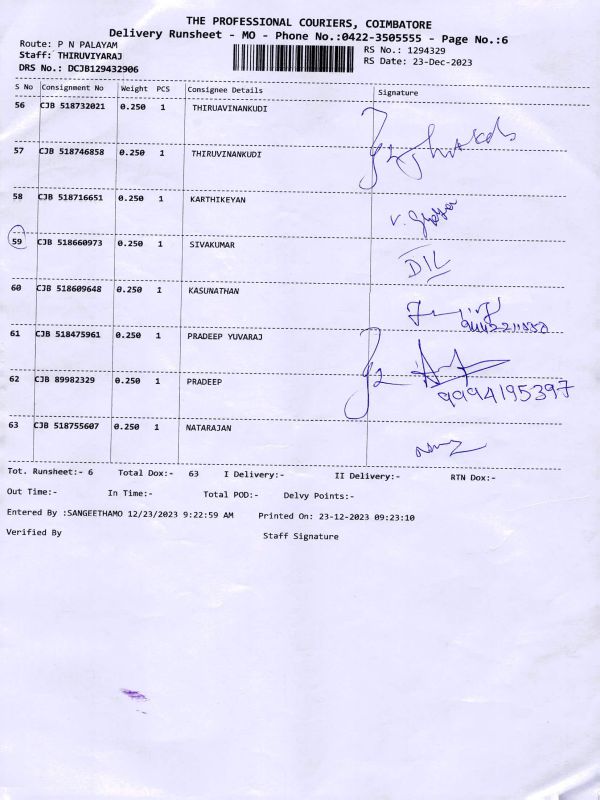 THE PROFESSIONAL COURIERS, COIMBATORE
Delivery Runsheet - MO - Phone No.:0422-3505555 - Page No.:6
Route: P N PALAYAM RS No.: 1294329
Staff: THIRUVIYARAJ RS Date: 23-Dec-2023
DRS No.: DCJB129432906
S No Consignment No Weight PCS Consignee Details Signature
56 CJB 518732021 0.250 1 THIRUAVINANKUDI
57 CJB 518746858 0.250 1 THIRUVINANKUDI
58 CJB 518716651 0.250 1 KARTHIKEYAN
59 CJB 518660973 0.250 1 SIVAKUMAR DIL
60 CJB 518609648 0.250 1 KASUNATHAN
61 CJB 518475961 0.250 1 PRADEEP YUVARAJ
62 CJB 89982329 0.250 1 PRADEEP 9994195397
63 CJB 518755607 0.250 1 NATARAJAN
Tot. Runsheet:- 6 Total Dox:- 63 I Delivery:- II Delivery:- RTN Dox:-
Out Time:- In Time:- Total POD:- Delvy Points:-
Entered By :SANGEETHAMO 12/23/2023 9:22:59 AM Printed On: 23-12-2023 09:23:10
Verified By Staff Signature